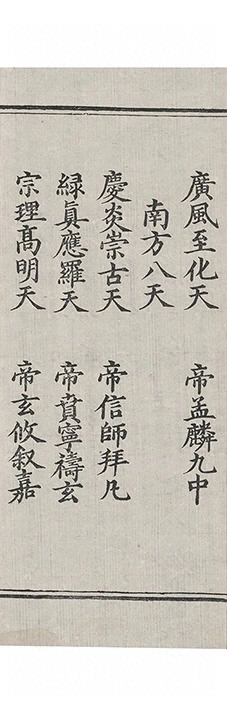 廣風至化天 帝孟麟九中
南方八天
慶炎崇古天 帝信師拜凡
緑眞應羅天 帝賁寧禱玄
宗理髙明天 帝玄攸叙嘉